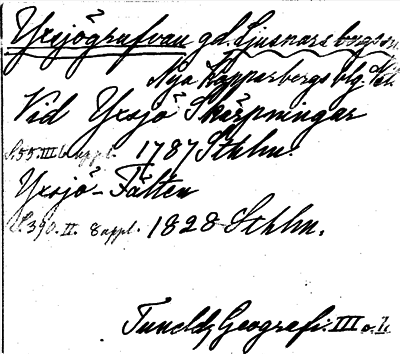 Yxsjögrufvan gd. Ljusnarsbergs sn.
Nya Kopparbergs blg. Vstm.
Vid Yxsjö Skärpningar
S. 55. III b. uppl. 1787 Sthlm.
Yxsjö-Fälten
S. 390. II. 8 uppl. 1828 Sthlm.
Tunelds Geografi. III o. II.